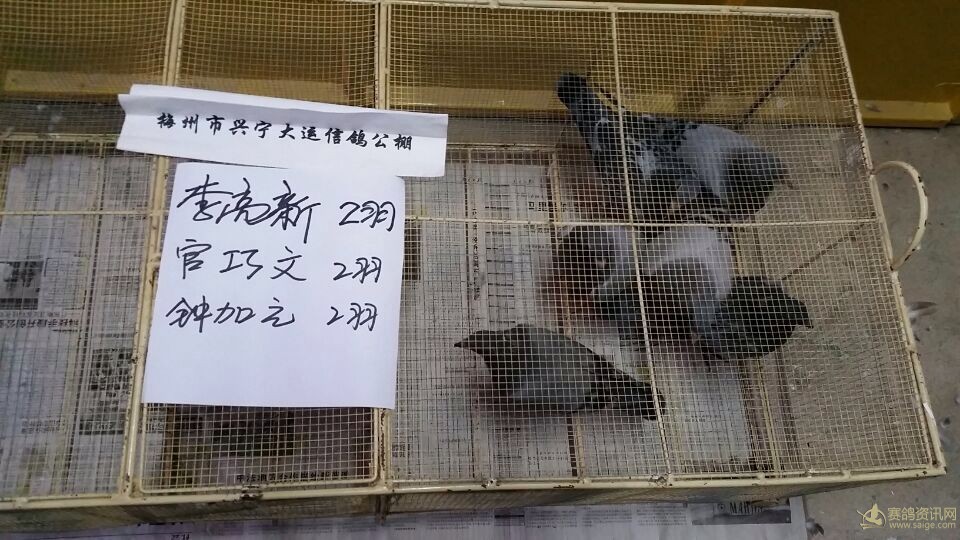 梅州市兴宁大运信鸽公棚
李高新 2羽
官巧文 2羽
钟加元 2羽
赛鸽资讯网
www.saige.com